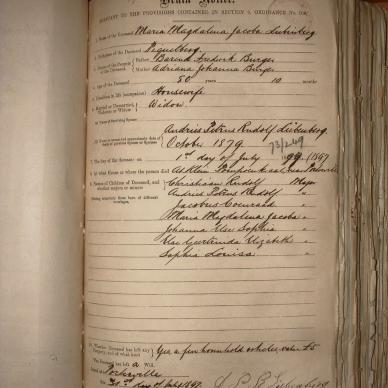 Death Notice.
PURSUANT TO THE PROVISIONS CONTAINED IN SECTION 9, ORDINANCE No. 104
1. Name of the Deceased Maria Magdalena Jacoba Liebenberg
2. Birthplace of the Deceased Piquetberg
3. Names of the Parents of the Deceased Father Barend Frederik Burger
Mother Adriana Johanna Burger
4. Age of the Deceased 50 years 10 months
5. Condition in life (occupation) Housewife
6. Married or Unmarried, Widower or Widow Widow
Andries Petrus Rudolf Liebenberg
October 1879
73/249
7. The day of the decease on 1st day of July 1897
8. At what House or where the person died At Klein
9. Names of Children of Deceased, and whether majors or minors Christiaan Rudolf Major
Andries Petrus Rudolf "
Jacobus Coenraad "
Maria Magdalena Jacoba "
Johanna Else Sophia "
Elizabeth "
Sophia Louisa "
Property, and of what kind Yes a few household value £5
The Deceased has left a Will
Dated at Porterville
day of July 1897